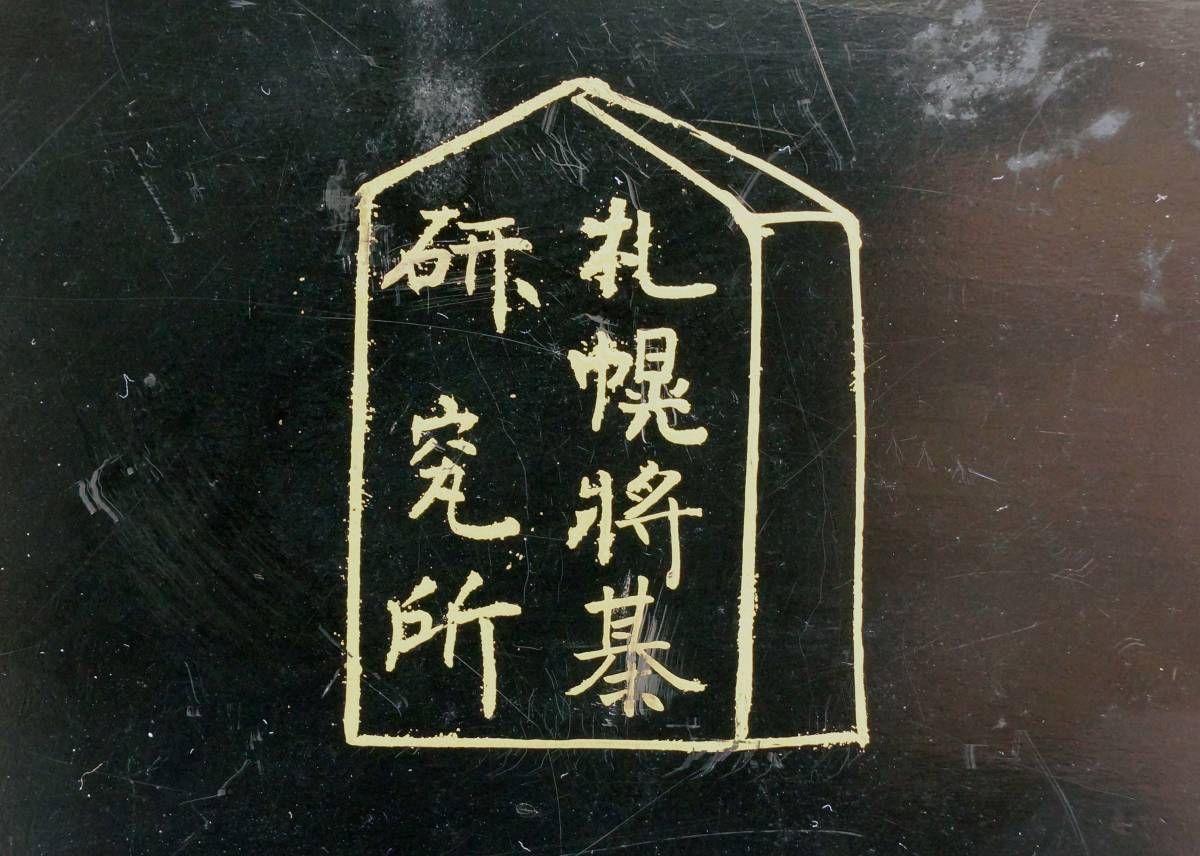 札幌將棊
研究所